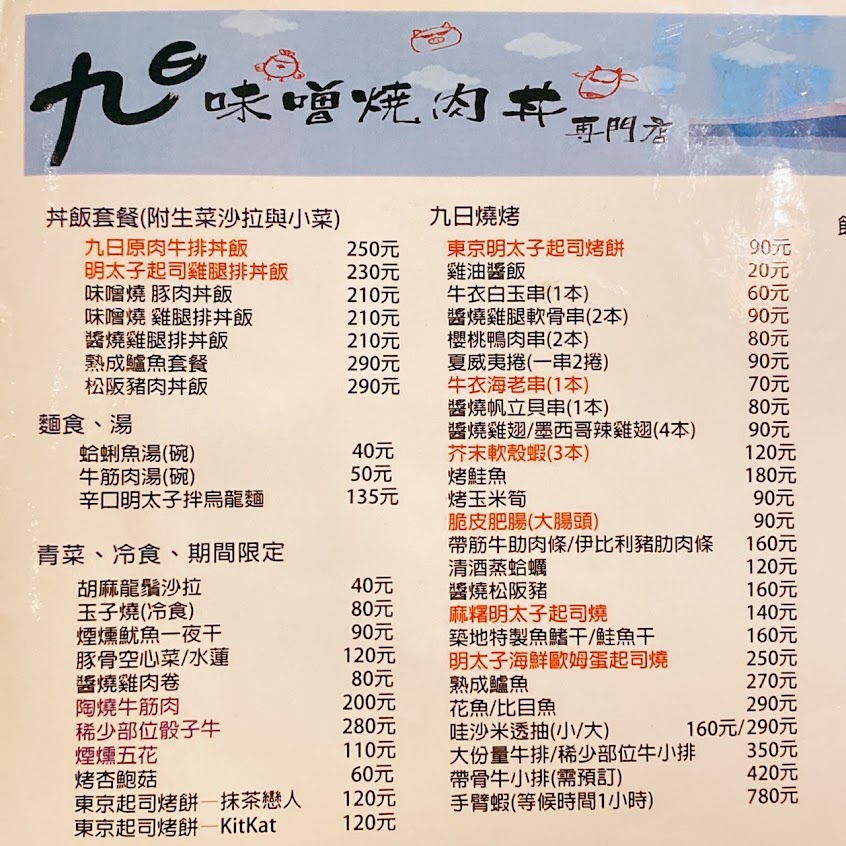 九日味噌燒肉丼專門店
丼飯套餐(附生菜沙拉與小菜)
九日原肉牛排丼飯 250元
明太子起司雞腿排丼飯 230元
味噌燒 豚肉丼飯 210元
味噌燒 雞腿排丼飯 210元
醬燒雞腿排丼飯 210元
熟成鱸魚套餐 290元
松阪豬肉丼飯 290元
麵食、湯
蛤蜊魚湯(碗) 40元
牛筋肉湯(碗) 50元
辛口明太子拌烏龍麵 135元
青菜、冷食、期間限定
胡麻龍鬚沙拉 40元
玉子燒(冷食) 80元
煙燻魷魚一夜干 90元
豚骨空心菜/水蓮 120元
醬燒雞肉卷 80元
陶燒牛筋肉 200元
稀少部位骰子牛 280元
煙燻五花 110元
烤杏鮑菇 60元
東京起司烤餅─抹茶戀人 120元
東京起司烤餅─KitKat 120元
九日燒烤
東京明太子起司烤餅 90元
雞油醬飯 20元
牛衣白玉串(1本) 60元
醬燒雞腿軟骨串(2本) 90元
櫻桃鴨肉串(2本) 80元
夏威夷捲(一串2捲) 90元
牛衣海老串(1本) 70元
醬燒帆立貝串(1本) 80元
醬燒雞翅/墨西哥辣雞翅(4本) 90元
芥末軟殼蝦(3本) 120元
烤鮭魚 180元
烤玉米筍 90元
脆皮肥腸(大腸頭) 90元
帶筋牛肋肉條/伊比利豬肋肉條 160元
清酒蒸蛤蠣 120元
醬燒松阪豬 160元
麻糬明太子起司燒 140元
築地特製魚鰭干/鮭魚干 160元
明太子海鮮歐姆蛋起司燒 250元
熟成鱸魚 270元
花魚/比目魚 290元
哇沙米透抽(小/大) 160元/290元
大份量牛排/稀少部位牛小排 350元
帶骨牛小排(需預訂) 420元
手臂蝦(等候時間1小時) 780元